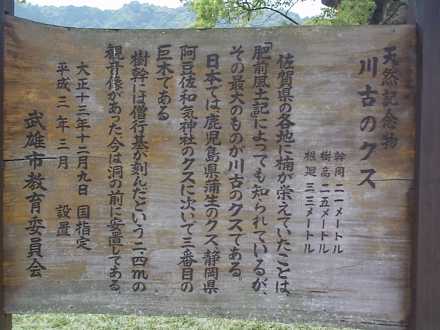 天然記念物
川古のクス
幹回 二一メートル
樹高 二五メートル
根廻 三三メートル
佐賀県の各地に楠が栄えていたことは、
「肥前風土記」によっても知られているが、
その最大のものが川古のクスである。
日本では鹿児島県蒲生のクス、静岡県
阿豆佐和気神社のクスに次いで三番目の
巨木である
樹幹には僧行基が刻んだという二・四mの
観音像があった、今は洞の前に安置してある。
大正十三年十二月九日 国指定
平成三年三月 設置
武雄市教育委員会